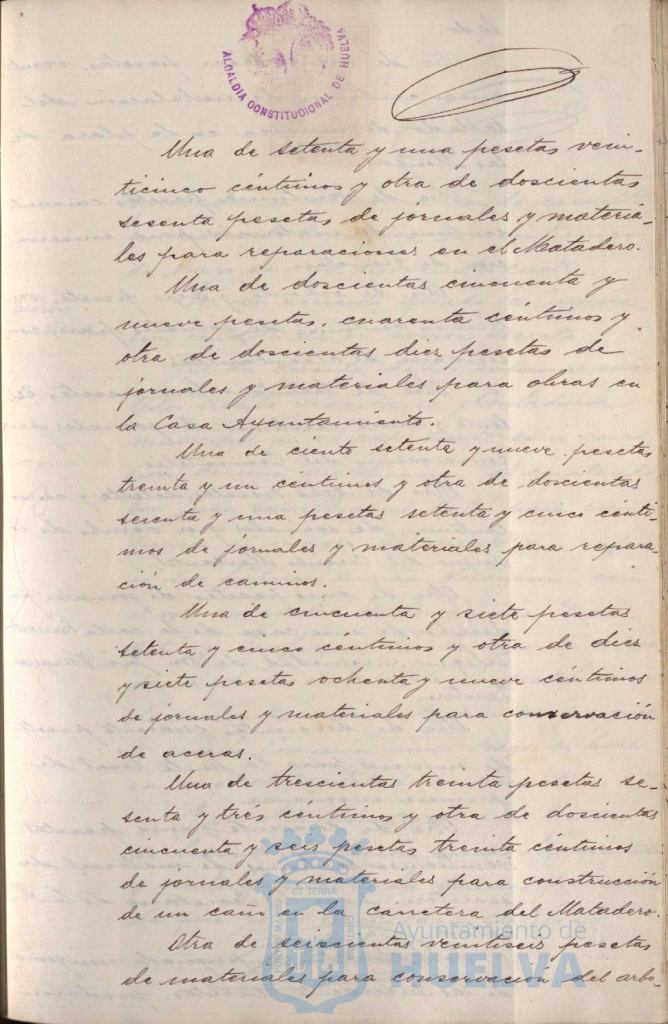 ALCALDIA CONSTITUCIONAL DE HUELVA
Una de setenta y una pesetas vein-
ticinco céntimos y otra de doscientas
sesenta pesetas de jornales y materia-
les para reparaciones en el Matadero.
Una de doscientas cincuenta y
nueve pesetas, cuarenta céntimos y
otra de doscientas diez pesetas de
jornales y materiales para obras en
la Casa Ayuntamiento.
Una de ciento setenta y nueve pesetas
treinta y un céntimos y otra de doscientas
sesenta y una pesetas setenta y cinco cénti-
mos de jornales y materiales para repara-
ción de caminos.
Una de cincuenta y siete pesetas
setenta y cinco céntimos y otra de diez
y siete pesetas ochenta y nueve céntimos
de jornales y materiales para conservación
de aceras.
Una de trescientas treinta pesetas se-
senta y trés céntimos y otra de doscientas
cincuenta y seis pesetas treinta céntimos
de jornales y materiales para construcción
de un caño en la carretera del Matadero.
Otra de seiscientas veintiseis pesetas
de materiales para conservación del arbo-
Ayuntamiento de
HUELVA